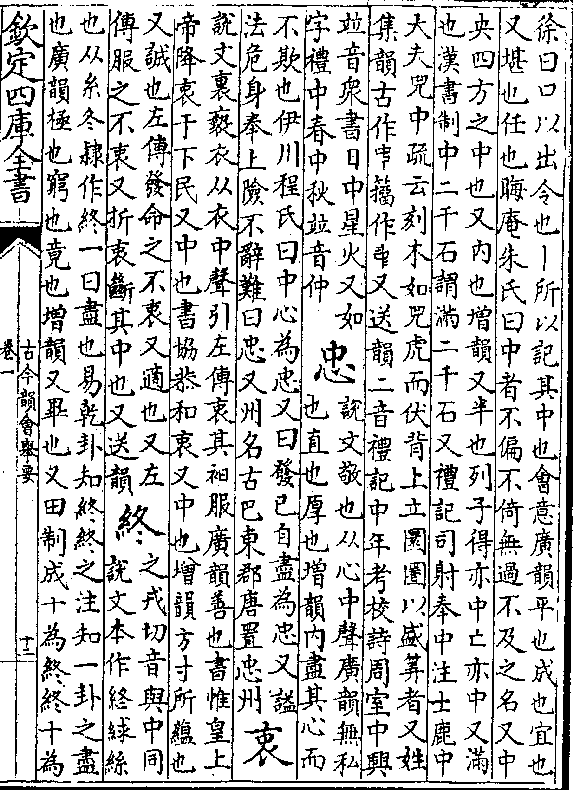 徐曰口以出令也丨所以記其中也會意廣韻平也成也宜也
又堪也任也晦庵朱氏曰中者不偏不倚無過不及之名又中
央四方之中也又内也增韻又半也列子得亦中亡亦中又滿
也漢書制中二千石謂滿二千石又禮記司射奉中注士鹿中
大夫兕中疏云刻木如兕虎而伏背上立圜圈以盛筭者又姓
集韻古作𠁧籀作𠁩又送韻二音禮記中年考校詩周室中興
並音衆書日中星火又如
字禮中春中秋並音仲
忠
說文敬也从心中聲廣韻無私
也直也厚也增韻内盡其心而
不欺也伊川程氏曰中心為忠又曰發已自盡為忠又謚
法危身奉上險不辭難曰忠又州名古巴東郡唐置忠州
衷
說文裏褻衣从衣中聲引左傳衷其衵服廣韻善也書惟皇上
帝降衷于下民又中也書協恭和衷又中也增韻方寸所藴也
又誠也左傳發命之不衷又適也又左
傳服之不衷又折衷斷其中也又送韻
終
之戎切音與中同
說文本作終綠絲
也从糸冬隸作終一曰盡也易乾卦知終終之注知一卦之盡
也廣韻極也窮也竟也增韻又畢也又田制成十為終終十為
欽定四庫全書
古今韻會舉要
卷一
十二